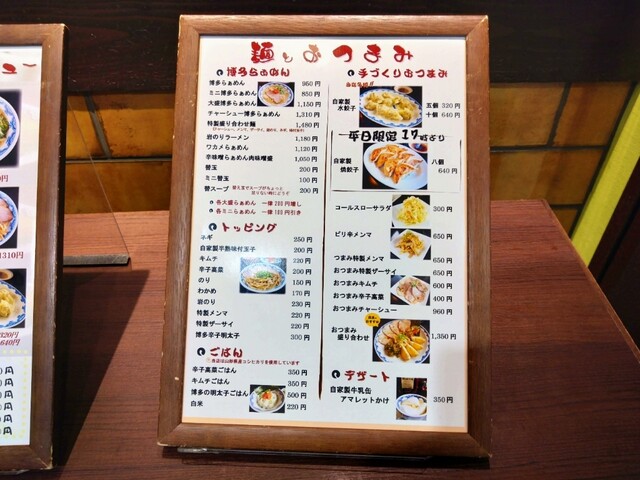 麺とおつまみ
博多らぁめん
博多らぁめん 960円
ミニ博多らぁめん 850円
大盛博多らぁめん 1,150円
チャーシュー博多らぁめん 1,310円
特製盛り合わせ麺 1,480円
岩のりラーメン 1,180円
ワカメらぁめん 1,120円
辛味噌らぁめん肉味噌盛 1,050円
替玉 200円
ミニ替玉 100円
替スープ 200円
各大盛らぁめん 一律200円増し
各ミニらぁめん 一律100円引き
トッピング
ネギ 250円
自家製半熟味付玉子 200円
キムチ 320円
辛子高菜 200円
のり 150円
わかめ 170円
岩のり 230円
特製メンマ 220円
特製ザーサイ 220円
博多辛子明太子 300円
ごはん
当店は山形県産コシヒカリを使用しています
辛子高菜ごはん 350円
キムチごはん 350円
博多の明太子ごはん 500円
白米 220円
手づくりおつまみ
自家製水餃子
五個 320円
十個 640円
平日限定17時より
自家製焼餃子
八個 640円
コールスローサラダ 300円
ピリ辛メンマ 650円
つまみ特製メンマ 650円
おつまみ特製ザーサイ 650円
おつまみキムチ 600円
おつまみ辛子高菜 400円
おつまみチャーシュー 960円
おつまみ盛り合わせ 1,350円
デザート
自家製牛乳缶
アマレットかけ 350円
1310円
320円
640円